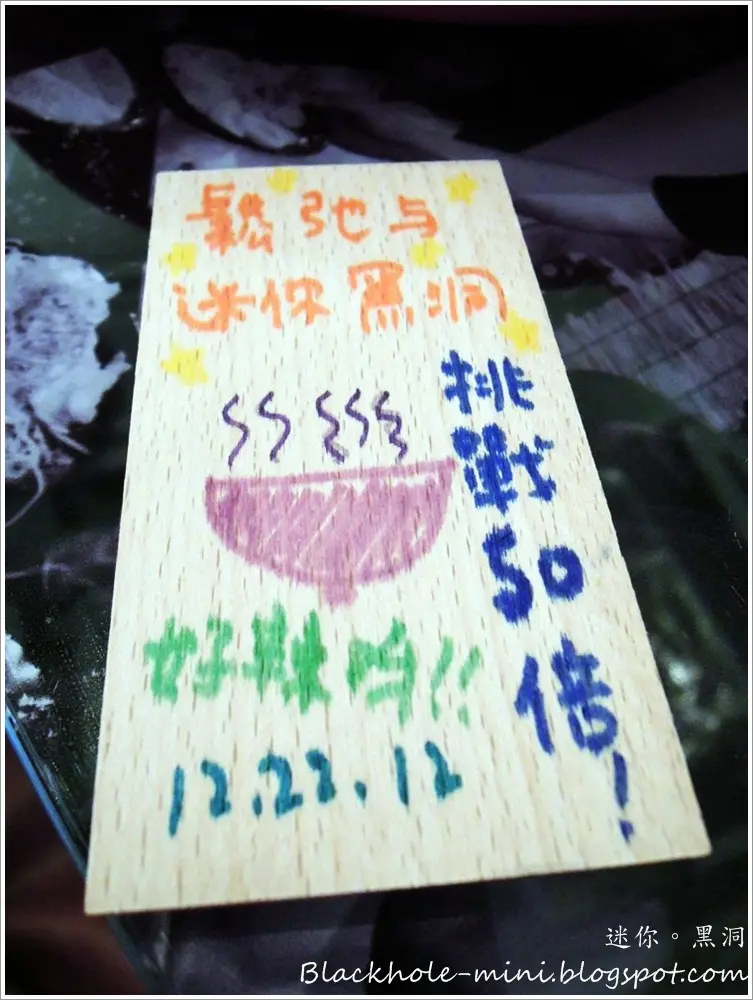 鬆弛与
迷你黑洞
挑戰50倍!
好辣哟!!
12.22.12
迷你。黑洞
Blackhole-mini.blogspot.com